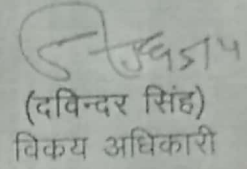 (दविन्दर सिंह)
विकय अधिकारी